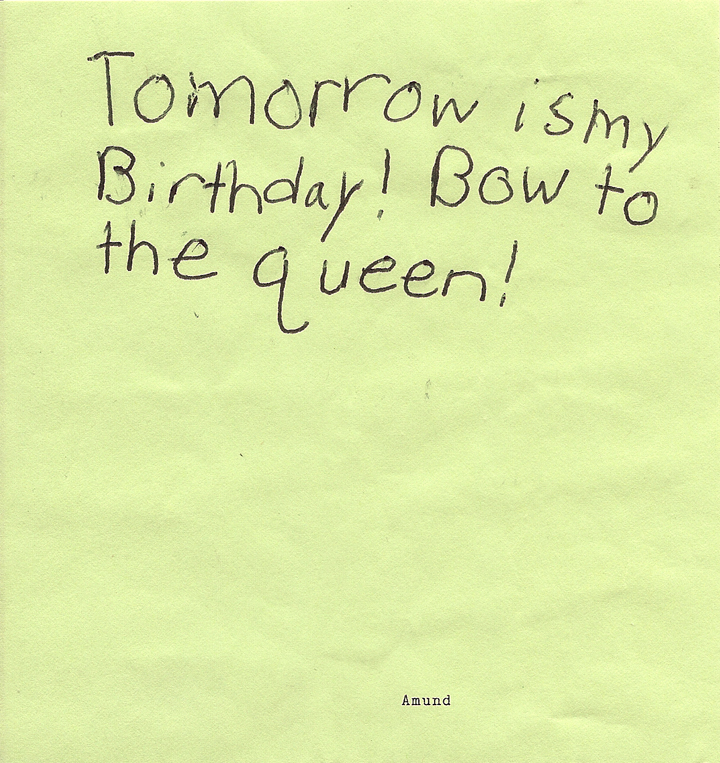 Tomorrow is my
Birthday! Bow to
the queen!
Amund